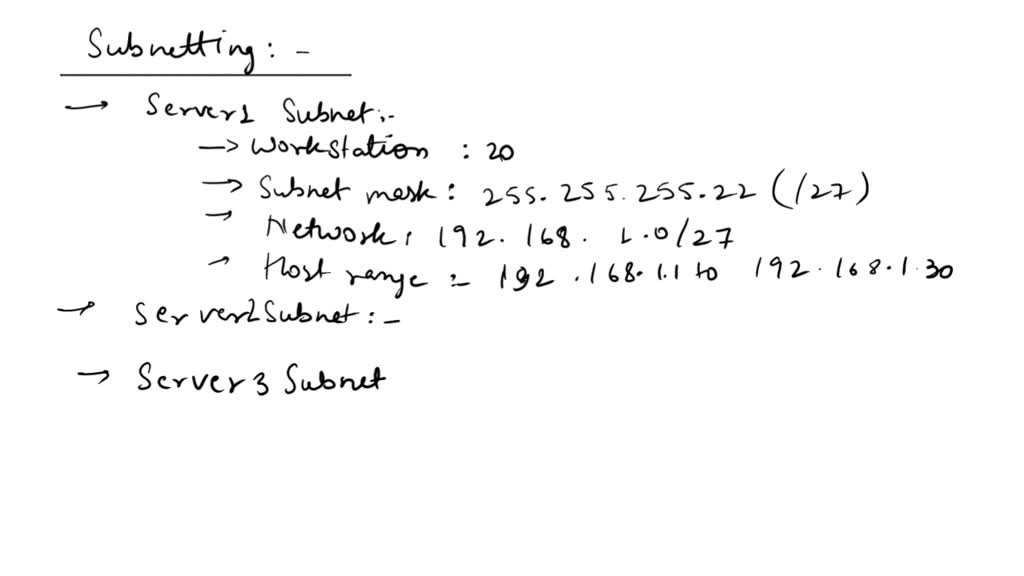 Subnetting: -
→ Server1 Subnet:-
→ Workstation : 20
→ Subnet mask: 255.255.255.22 (/27)
→ Network: 192.168.1.0/27
→ Host range :- 192.168.1.1 to 192.168.1.30
→ Server2 Subnet: -
→ Server 3 Subnet